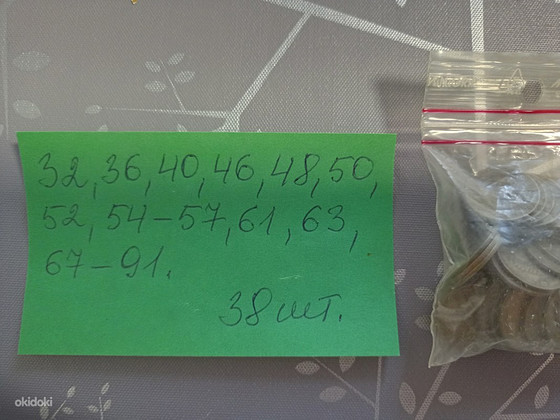 32, 36, 40, 46, 48, 50,
52, 54-57, 61, 63,
67-91.
38 шт.
okidoki